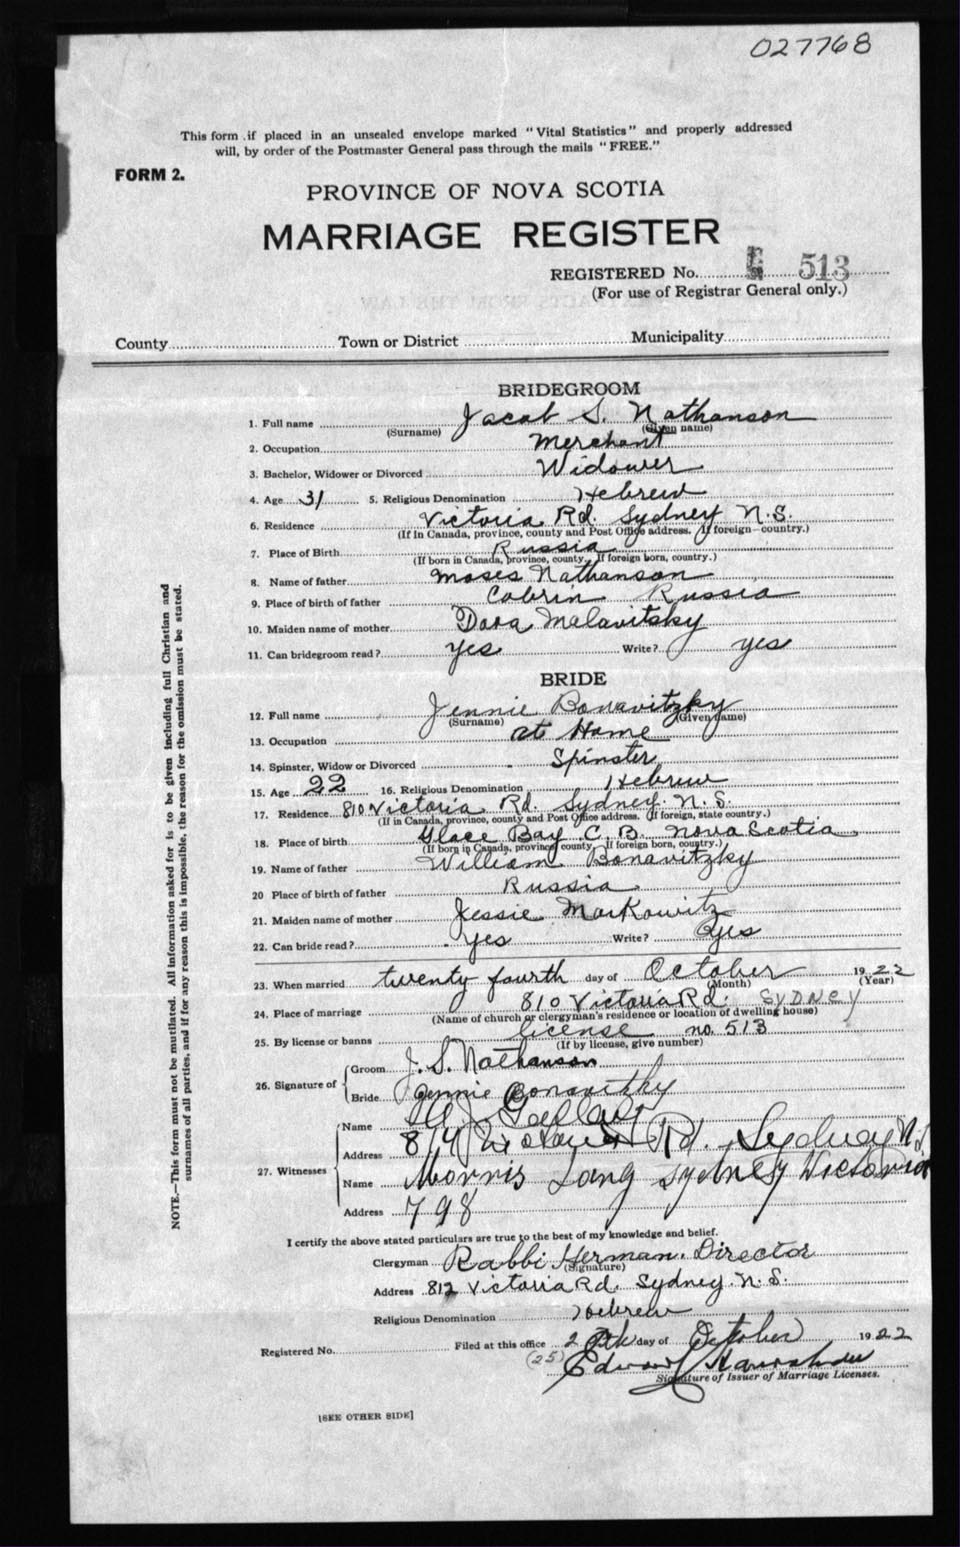 027768
This form if placed in an unsealed envelope marked "Vital Statistics" and properly addressed
will, by order of the Postmaster General pass through the mails "FREE."
FORM 2.
PROVINCE OF NOVA SCOTIA
MARRIAGE REGISTER
REGISTERED No. 513
(For use of Registrar General only.)
County Town or District Municipality
BRIDEGROOM
1. Full name Jacob S. Nathanson
(Surname) (Given name)
2. Occupation Merchant
3. Bachelor, Widower or Divorced Widower
4. Age 31 5. Religious Denomination Hebrew
6. Residence Victoria Rd Sydney N.S.
(If in Canada, province, county and Post Office address. If foreign country.)
7. Place of Birth Russia
(If born in Canada, province, county. If foreign born, country.)
8. Name of father Moses Nathanson
9. Place of birth of father Cobrin Russia
10. Maiden name of mother Dora Malavitsky
11. Can bridegroom read? yes Write? yes
BRIDE
12. Full name Jennie Bonavitzky
(Surname) (Given name)
13. Occupation at Home
14. Spinster, Widow or Divorced Spinster
15. Age 22 16. Religious Denomination Hebrew
17. Residence 810 Victoria Rd. Sydney. N.S.
(If in Canada, province, county and Post Office address. If foreign, state country.)
18. Place of birth Glace Bay C.B. Nova Scotia
(If born in Canada, province, county. If foreign born, country.)
19. Name of father William Bonavitzky
20 Place of birth of father Russia
21. Maiden name of mother Jessie Markowitz
22. Can bride read? yes Write? Yes
23. When married twenty fourth day of October 1922
(Month) (Year)
24. Place of marriage 810 Victoria Rd. SYDNEY
(Name of church or clergyman's residence or location of dwelling house)
25. By license or banns license no. 513
(If by license, give number)
26. Signature of
Groom J. S. Nathanson
Bride Jennie Bonavitzky
27. Witnesses
Name
Address Rd. Sydney N.S
Name Morris Lang Sydney Victoria
Address 798
I certify the above stated particulars are true to the best of my knowledge and belief.
Clergyman Rabbi Herman. Director
(Signature)
Address 812 Victoria Rd. Sydney. N.S.
Religious Denomination Hebrew
Registered No. Filed at this office day of October 1922
(25)
Edward
Signature of Issuer of Marriage Licenses.
[SEE OTHER SIDE]
NOTE.—This form must not be mutilated. All information asked for is to be given including full Christian and
surnames of all parties, and if for any reason this is impossible, the reason for the omission must be stated.